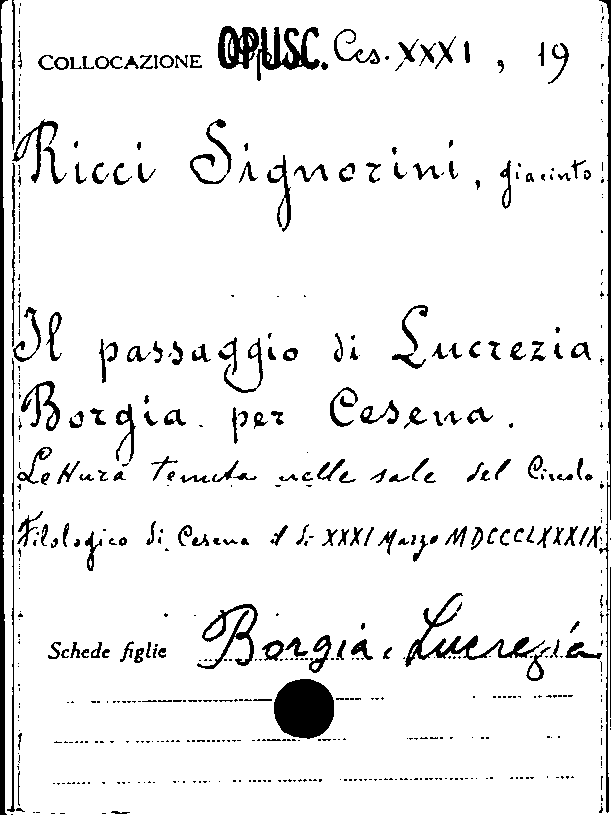 COLLOCAZIONE OPUSC. Ces. XXXI, 19
Ricci Signorini, Giacinto.
Il passaggio di Lucrezia
Borgia per Cesena.
Lettura tenuta nelle sale del Circolo
Filologico di Cesena il dì XXXI Marzo MDCCCLXXXIX.
Schede figlie Borgia, Lucrezia